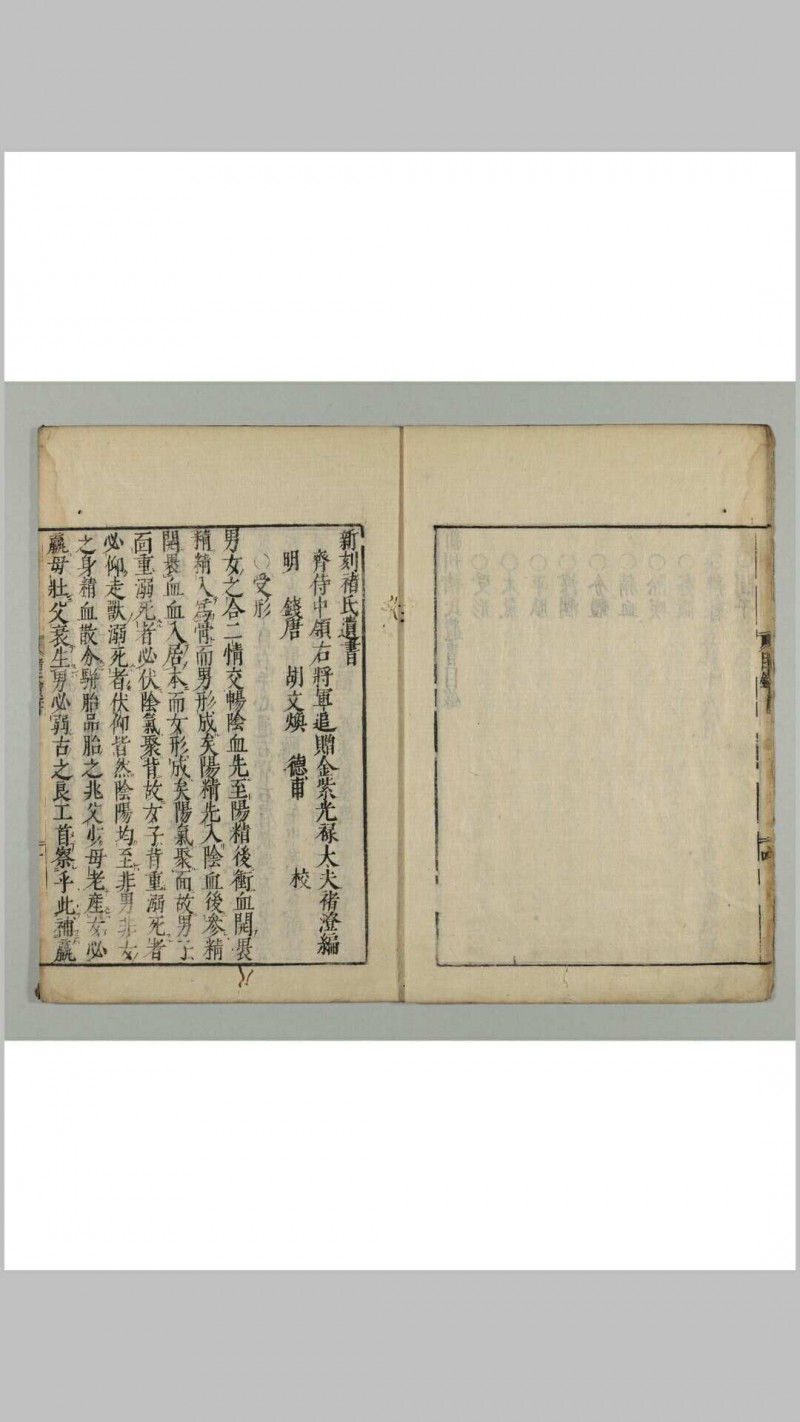 新刻褚氏遺書
齊侍中領右將軍追贈金紫光祿大夫褚澄編
明 錢唐 胡文煥 德甫 校
○受形
男女之合二情交暢陰血先至陽精後衝血開裹
精精入爲骨而男形成矣陽精先入陰血後參精
開裹血血入居本而女形成矣陽氣聚面故男子
面重溺死者必伏陰氣聚背故女子背重溺死者
必仰走獸溺死者伏仰皆然陰陽均至非男非女
之身精血散分駢胎品胎之兆父少母老產女必
羸母壯父衰生男必弱古之良工首察乎此補羸